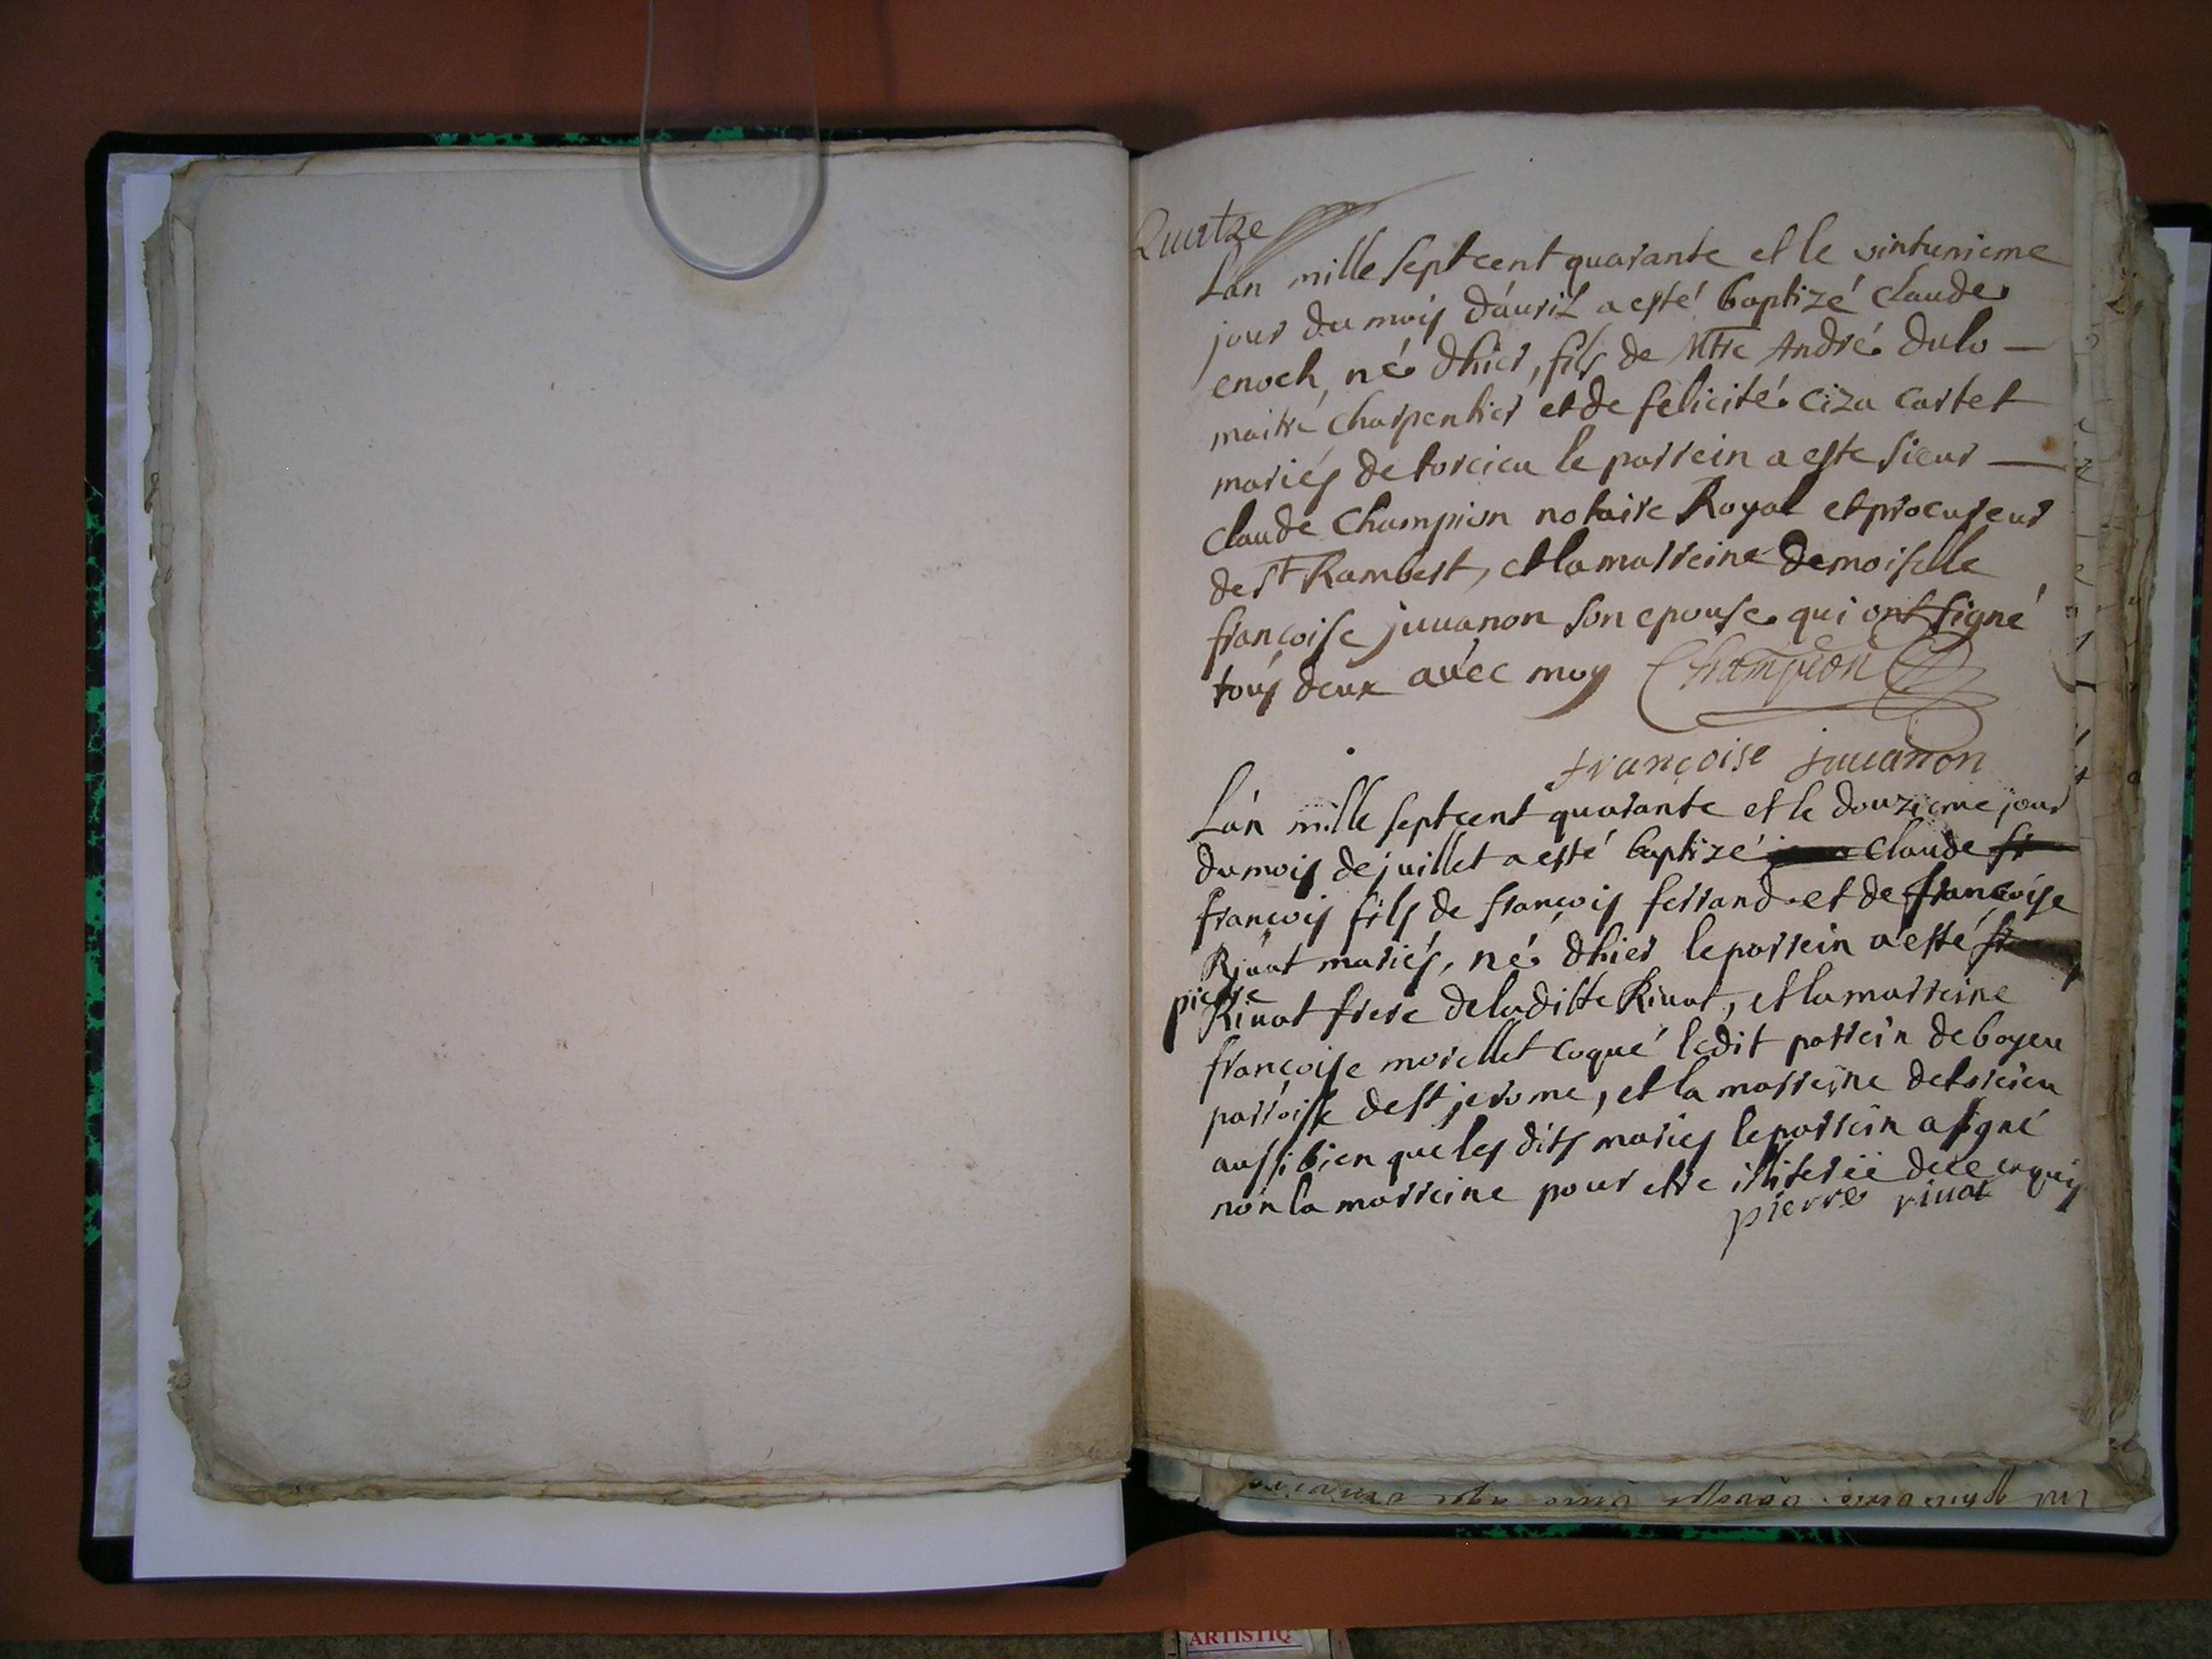 L'an mille sept cent quarante et le vintunieme
jour du mois d'auril a esté baptizé claude
enoch, né dhier, fils de Mtre André dulo —
maitre charpentier et de felicité ciza cartet
mariés de torcieu le parrein a este sieur —
claude Champion notaire Royal et procureur
de st Rambert, et la marreine demoiselle
françoise juuanon son epouse qui ont signé
tous deux avec moy Champion
françoise juuanon
L'an mille sept cent quarante et le douzieme jour
du mois de juillet a esté baptizé claude fr
françois fils de françois ferrand et de françoise
Riuat mariés, né dhier le parrein a esté
pierre
Riuat frere de laditte Riuat, et la marreine
françoise morellet coqué ledit parrein de boyeu
parroisse de st jerome, et la marreine de torcieu
aussi bien que les dits mariés le parrein a signé
non la marreine pour etre illiterée de ce enquis
pierre riuat
ARTISTIQ